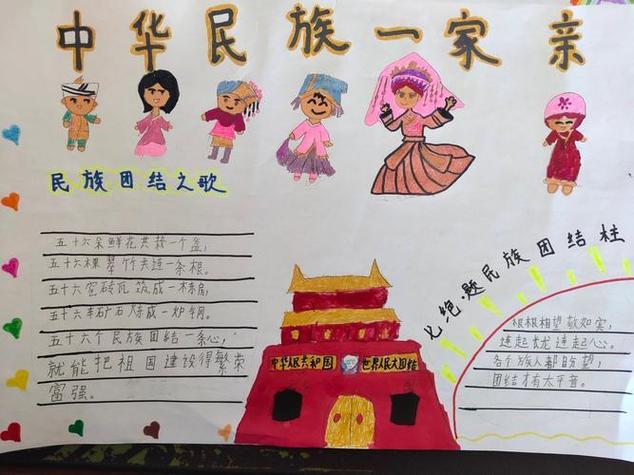 中华民族一家亲
民族团结之歌
五十六朵鲜花共栽一个盆,
五十六棵翠竹共连一条根。
五十六窑砖瓦筑成一栋房,
五十六车矿石炼成一炉钢。
五十六个民族团结一条心,
就能把祖国建设得繁荣
富强。
中华人民共和国 世界人民大团结
七绝·题民族团结柱
根根相望敬如宾,
连起就连起心。
各个族人都盼望,
团结才有太平音。